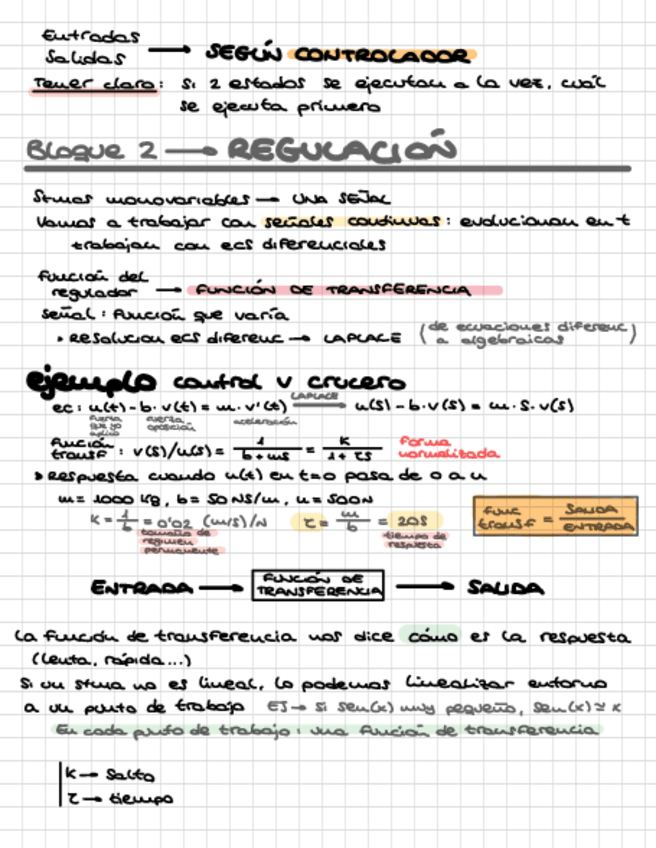 Entradas
Salidas → SEGÚN CONTROLADOR
Tener claro: Si 2 estados se ejecutan a la vez, cuál
se ejecuta primero
Bloque 2 → REGULACIÓN
Stmas monovariables → UNA SEÑAL
Vamos a trabajar con señales continuas: evolucionan en t
trabajan con ecs diferenciales
Función del
regulador → FUNCIÓN DE TRANSFERENCIA
Señal: Función que varía
• Resolucion ecs diferenc → LAPLACE (de ecuaciones diferenc
a algebraicas)
ejemplo control v crucero
ec: u(t) - b·v(t) = m·v'(t) LAPLACE → u(s) - b·v(s) = m·s·v(s)
fuerza que yo aplico fuerza oposición aceleración
función
transf: v(s)/u(s) = 1/(b+ms) = K/(1+τs) forma
normalizada
▸ Respuesta cuando u(t) en t=0 pasa de 0 a u
m = 1000 kg, b = 50 NS/m, u = 500N
K = 1/b = 0'02 (m/s)/N τ = m/b = 20s
tamaño de
regimen
permanente
tiempo de
respuesta
func
transf = SALIDA/ENTRADA
ENTRADA → FUNCIÓN DE
TRANSFERENCIA → SALIDA
La función de transferencia nos dice cómo es la respuesta
(lenta, rápida...)
Si un stma no es lineal, lo podemos linealizar entorno
a un punto de trabajo EJ → si sen(x) muy pequeño, sen(x) ≃ x
En cada punto de trabajo: una función de transferencia
K → Salto
τ → tiempo